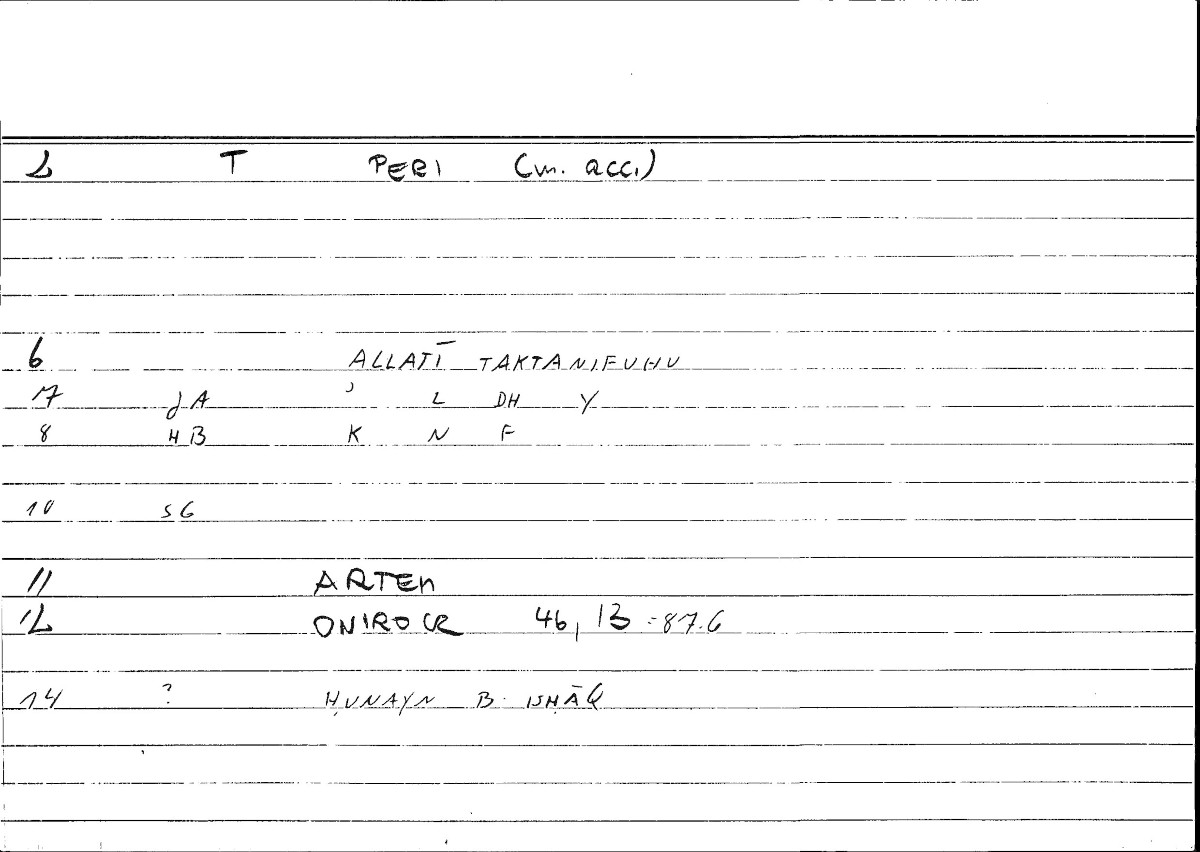 2 T PERI (m. acc.)
6 ALLATĪ TAKTANIFUHU
7 JA ʾ L DH Y
8 HB K N F
10 SG
11 ARTEM
12 ONIROCR 46, 13 = 87.6
14 ? ḤUNAYN B. ISḤĀQ